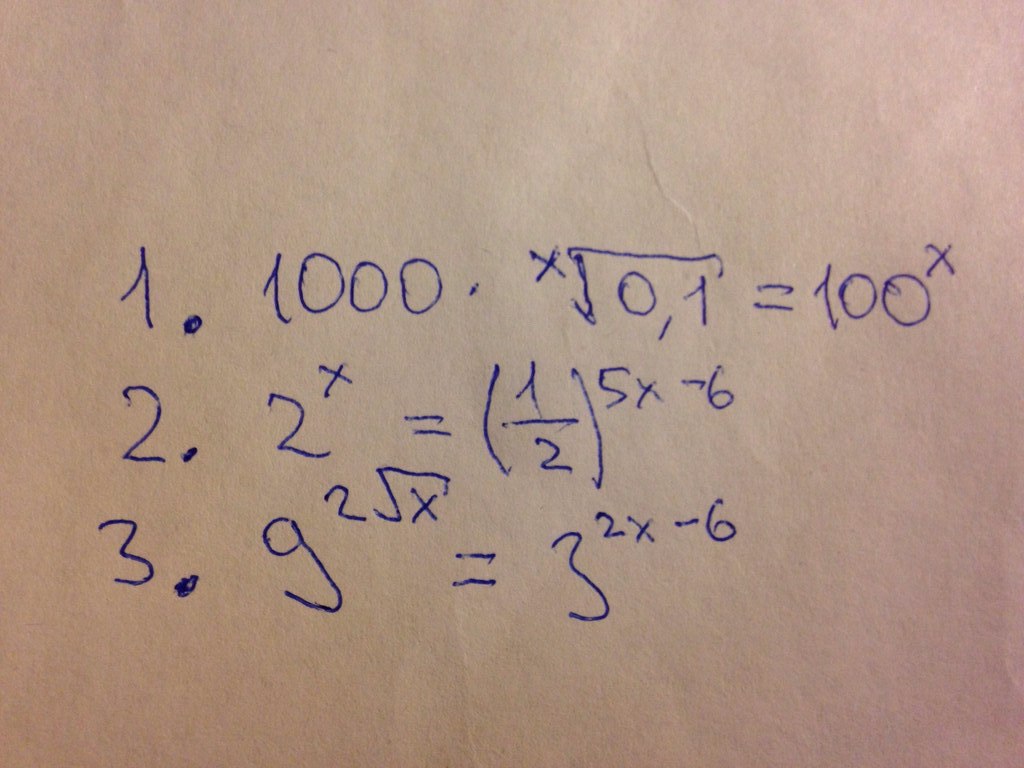 1. 1000 · ˣ√0,1 = 100ˣ
2. 2ˣ = (1/2)⁵ˣ⁻⁶
3. 9^(2√x) = 3²ˣ⁻⁶